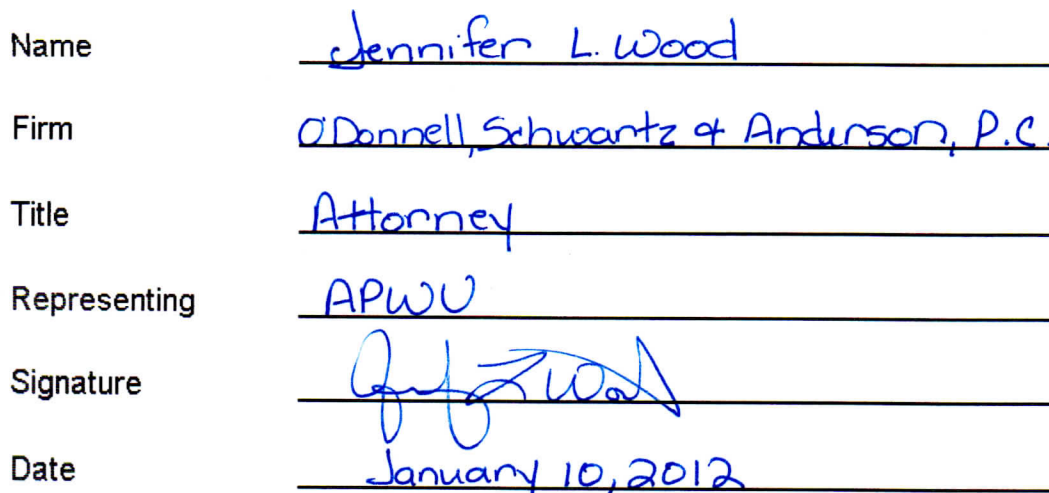 Name Jennifer L. Wood
Firm O'Donnell, Schwartz & Anderson, P.C.
Title Attorney
Representing APWU
Signature
Date January 10, 2012